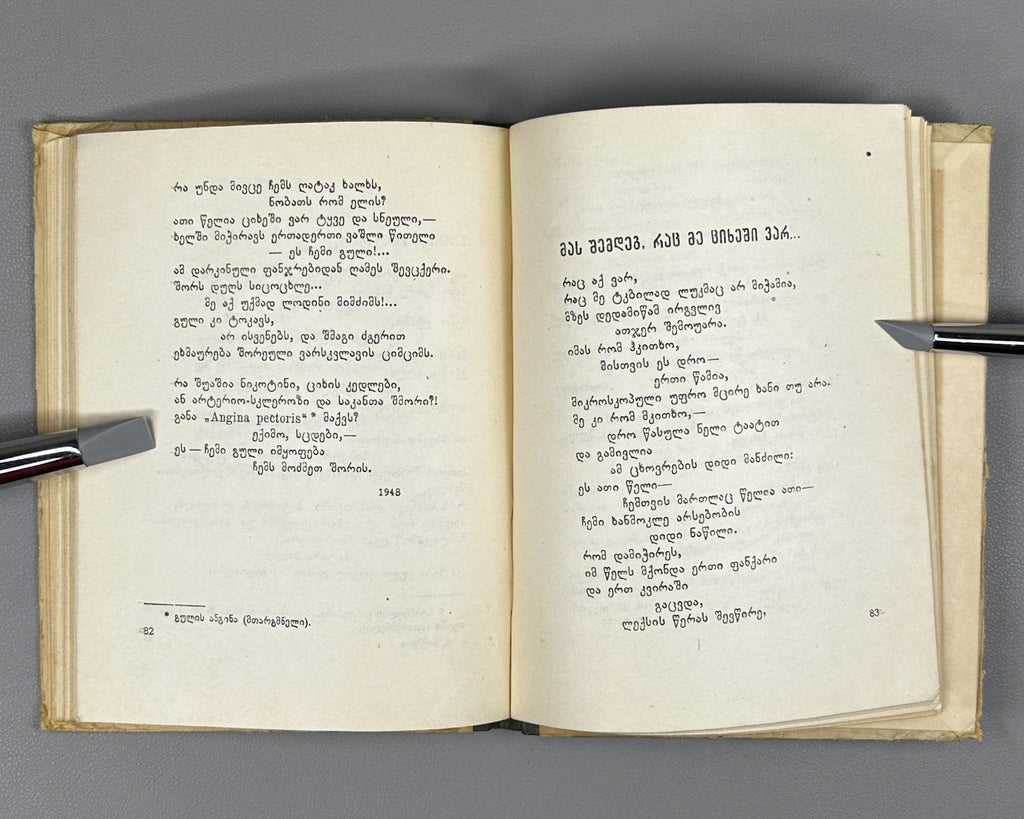 რა უნდა მივცე ჩემს ღატაკ ხალხს,
ნობათს რომ ელის?
ათი წელია ციხეში ვარ ტყვე და სნეული,—
ხელში მიჭირავს ერთადერთი ვაშლი წითელი
— ეს ჩემი გული!...
ამ დარკინული ფანჯრებიდან ღამეს შევცქერი.
შორს დუღს სიცოცხლე...
მე აქ უქმად ლოდინი მიმძიმს!...
გული კი ტოკავს,
არ ისვენებს, და შმაგი ძგერით
ეხმაურება შორეული ვარსკვლავის ციმციმს.
რა შუაშია ნიკოტინი, ციხის კედლები,
ან არტერიო-სკლეროზი და საკანთა შმორი?!
განა „Angina pectoris“* მაქვს?
ექიმო, სცდები,—
ეს — ჩემი გული იმყოფება
ჩემს მოძმეთ შორის.
1948
* გულის ანგინა (მთარგმნელი).
82
მას შემდეგ, რაც მე ციხეში ვარ...
რაც აქ ვარ,
რაც მე ტკბილად ლუკმაც არ მიჭამია,
მზეს დედამიწამ ირგვლივ
ათჯერ შემოუარა.
იმას რომ ჰკითხო,
მისთვის ეს დრო—
ერთი წამია,
მიკროსკოპული უფრო მცირე ხანი თუ არა.
მე კი რომ მკითხო,—
დრო წასულა ნელი ტაატით
და გამივლია
ამ ცხოვრების დიდი მანძილი:
ეს ათი წელი—
ჩემთვის მართლაც წელია ათი—
ჩემი ხანმოკლე არსებობის
დიდი ნაწილი.
რომ დამიჭირეს,
იმ წელს მქონდა ერთი ფანქარი
და ერთ კვირაში
გაცვდა,
ლექსის წერას შევწირე,
83